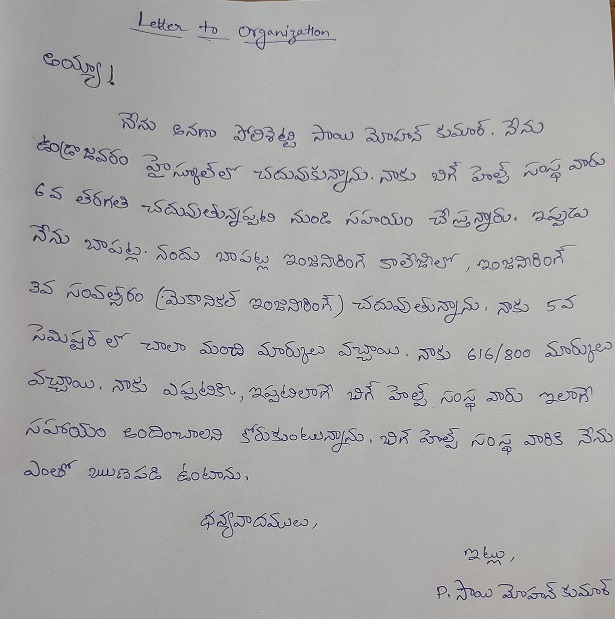 Letter to organization
అయ్యా!
నేను అనగా పోలిశెట్టి సాయి మోహన్ కుమార్. నేను
ఉండ్రాజవరం హైస్కూల్‌లో చదువుకున్నాను. నాకు బిగ్ హెల్ప్ సంస్థ వారు
6వ తరగతి చదువుతున్నప్పటి నుండి సహాయం చేస్తున్నారు. ఇప్పుడు
నేను బాపట్ల. నందు బాపట్ల ఇంజనీరింగ్ కాలేజీలో, ఇంజనీరింగ్
3వ సంవత్సరం (మెకానికల్ ఇంజనీరింగ్) చదువుతున్నాను. నాకు 5వ
సెమిష్టర్ లో చాలా మంచి మార్కులు వచ్చాయి. నాకు 616/800 మార్కులు
వచ్చాయి. నాకు ఎప్పటికి, ఇప్పటిలాగే బిగ్ హెల్ప్ సంస్థ వారు ఇలాగే
సహాయం అందించాలని కోరుకుంటున్నాను. బిగ్ హెల్ప్ సంస్థ వారికి నేను
ఎంతో ఋణపడి ఉంటాను.
ధన్యవాదములు,
ఇట్లు,
P. సాయి మోహన్ కుమార్